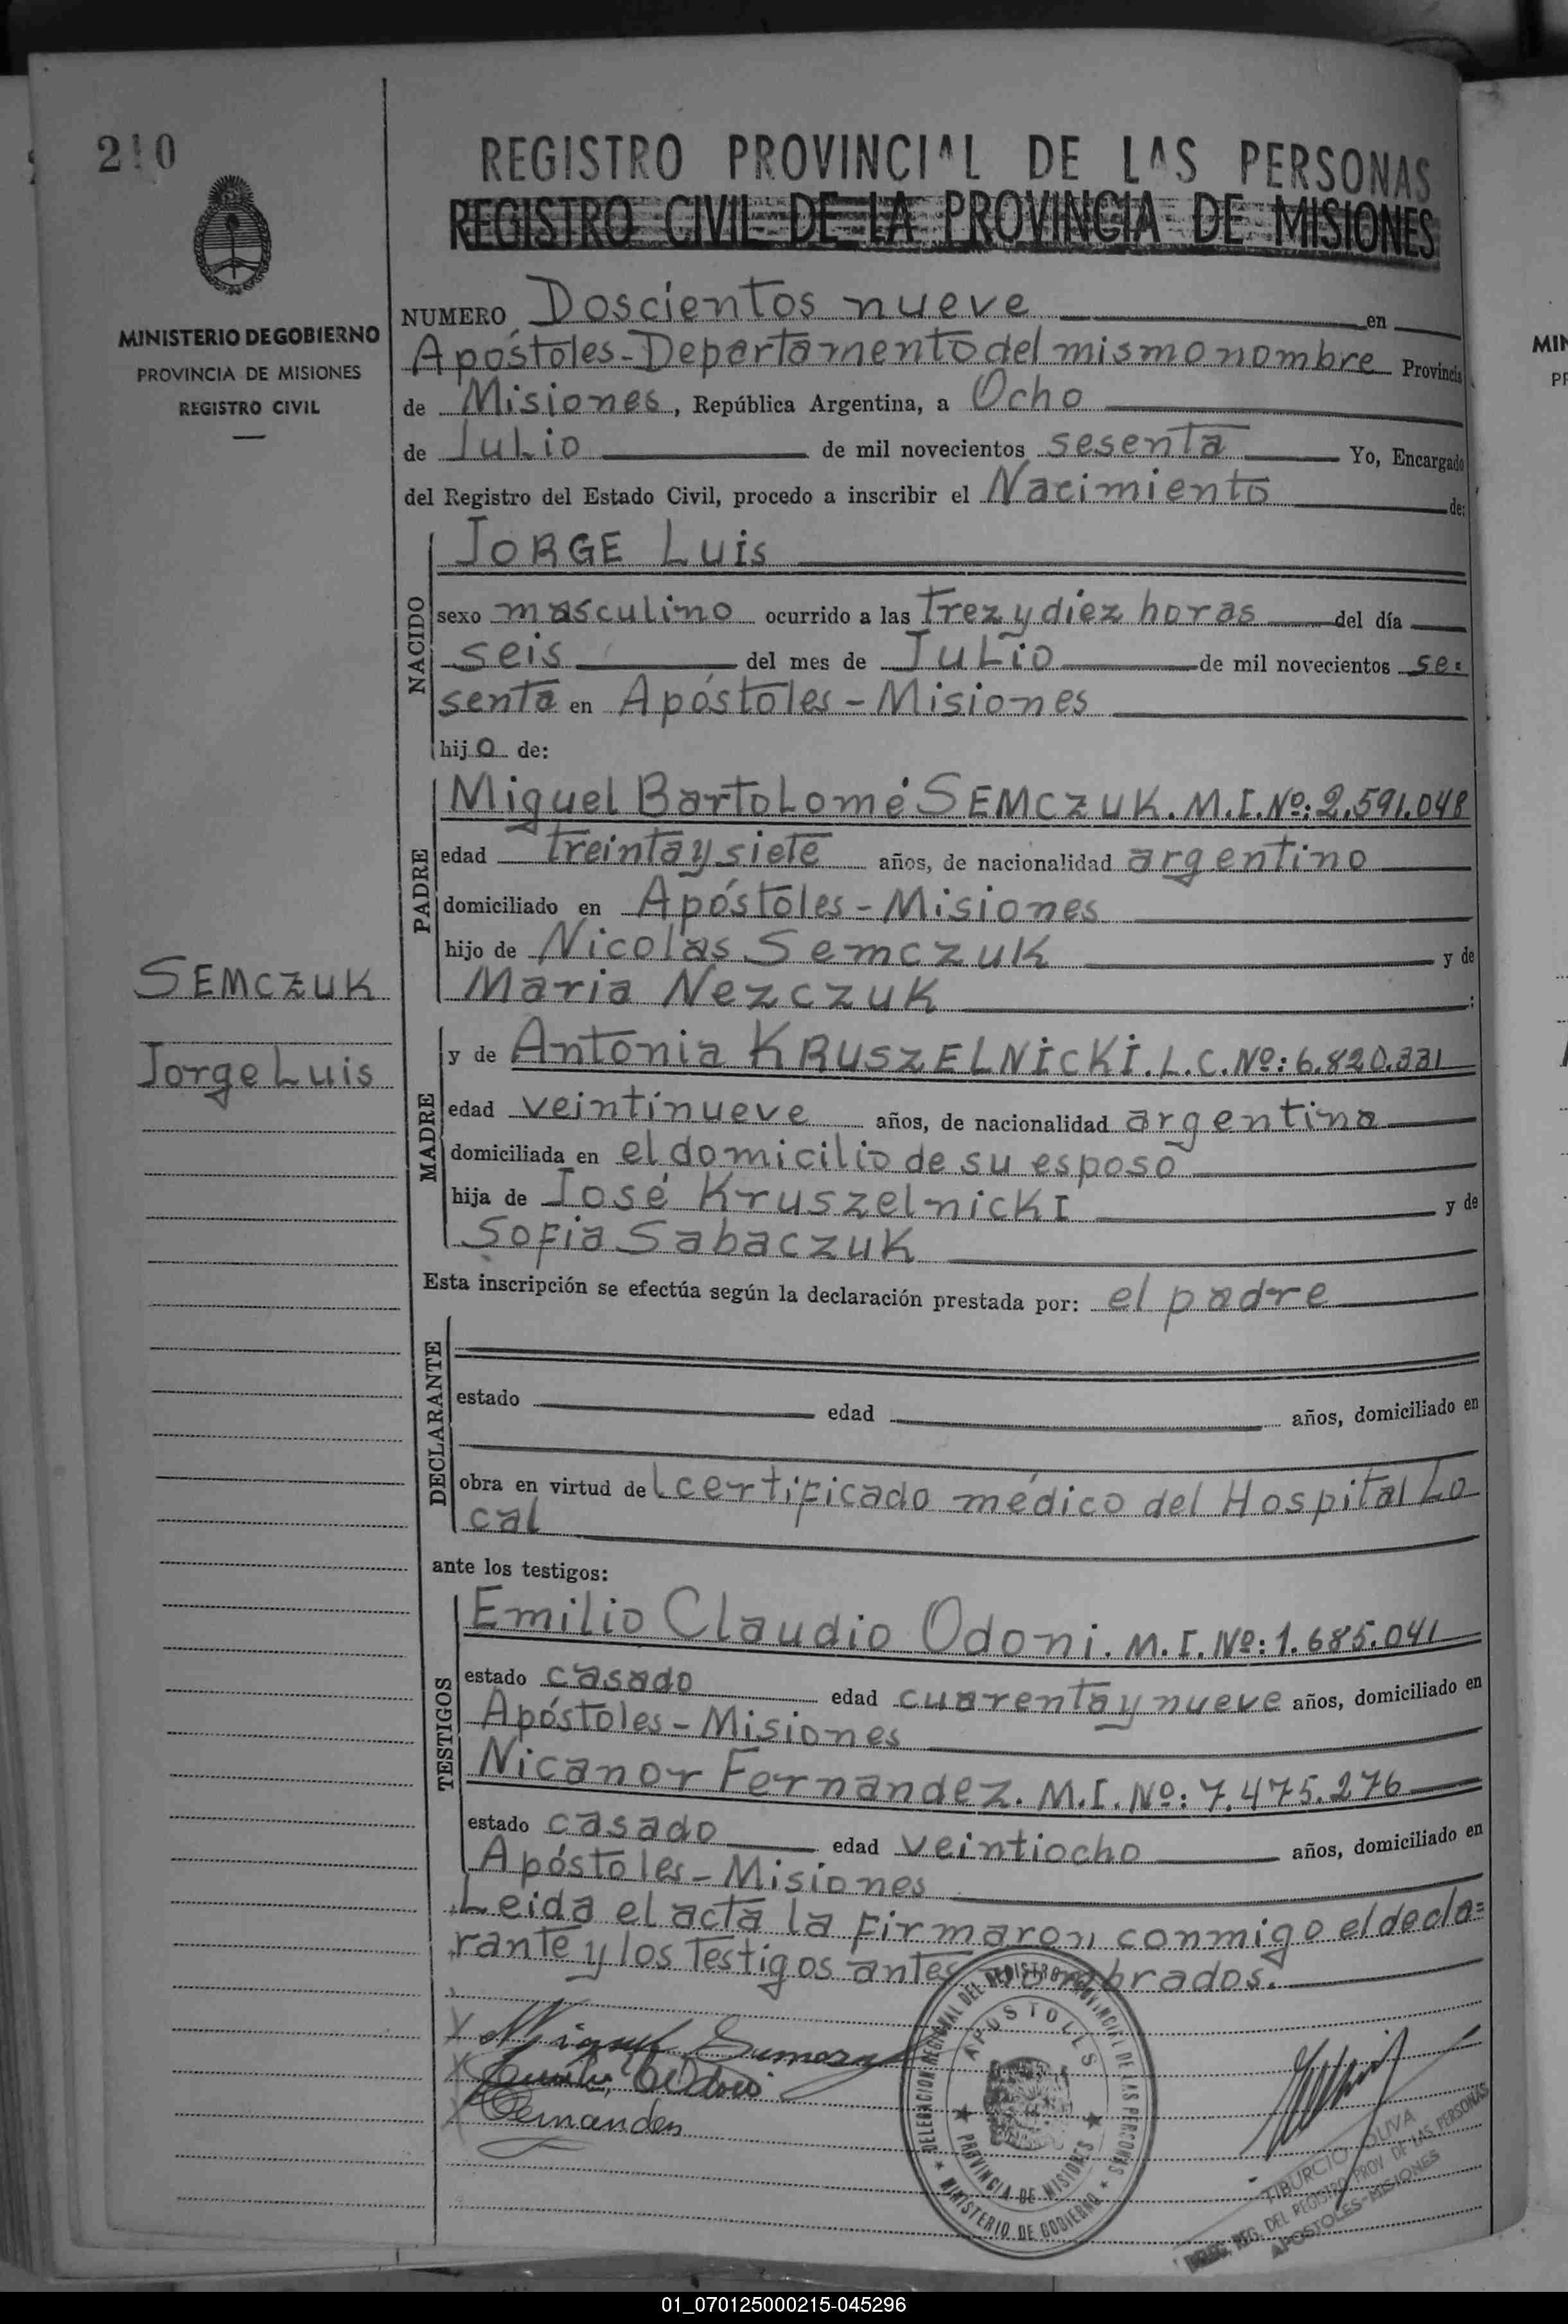 210
REGISTRO PROVINCIAL DE LAS PERSONAS
REGISTRO CIVIL DE LA PROVINCIA DE MISIONES
MINISTERIO DE GOBIERNO
PROVINCIA DE MISIONES
REGISTRO CIVIL
NUMERO Doscientos nueve en
Apóstoles-Departamento del mismo nombre Provincia
de Misiones, República Argentina, a Ocho
de Julio de mil novecientos sesenta Yo, Encargado
del Registro del Estado Civil, procedo a inscribir el Nacimiento de:
NACIDO
JORGE Luis
sexo masculino ocurrido a las Trez y diez horas del día
seis del mes de Julio de mil novecientos se=
senta en Apóstoles-Misiones
hijo de:
PADRE
Miguel Bartolomé SEMCZUK. M.I.Nº: 2.591.048
edad treinta y siete años, de nacionalidad argentino
domiciliado en Apóstoles-Misiones
hijo de Nicolas Semczuk y de
Maria Nezczuk :
SEMCZUK
Jorge Luis
MADRE
y de Antonia KRUSZELNICKI. L.C.Nº: 6.820.331
edad veintinueve años, de nacionalidad argentina
domiciliada en el domicilio de su esposo
hija de José Kruszelnicki y de
Sofia Sabaczuk
Esta inscripción se efectúa según la declaración prestada por: el padre
DECLARANTE
estado edad años, domiciliado en
obra en virtud del certificado médico del Hospital Lo
cal
ante los testigos:
TESTIGOS
Emilio Claudio Odoni. M.I.Nº: 1.685.041
estado casado edad cuarenta y nueve años, domiciliado en
Apóstoles-Misiones
Nicanor Fernandez. M.I.Nº: 7.475.276
estado casado edad veintiocho años, domiciliado en
Apóstoles-Misiones
Leida el acta la firmaron conmigo el decla=
rante y los Testigos antes nombrados.
Miguel
Fernandez
DELEGACION REGIONAL DEL REGISTRO PROVINCIAL DE LAS PERSONAS
APOSTOLES
PROVINCIA DE MISIONES
MINISTERIO DE GOBIERNO
TIBURCIO OLIVA
REG. DEL REGISTRO PROV DE LAS PERSONAS
APOSTOLES-MISIONES
MIN
01_070125000215-045296